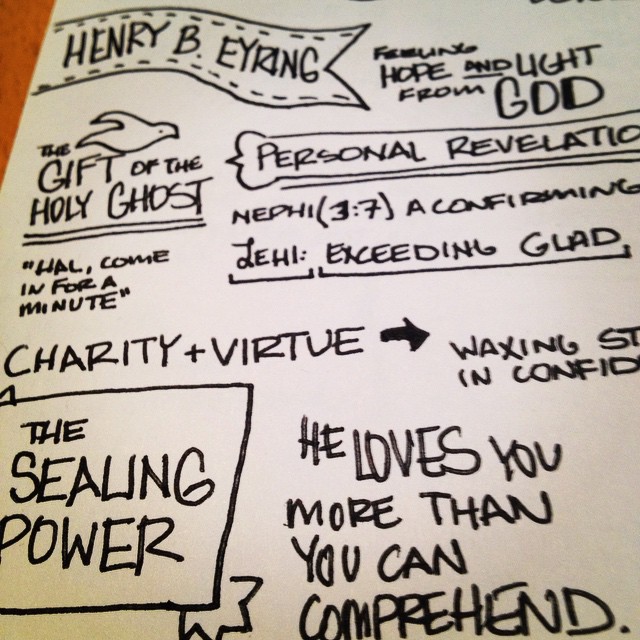 HENRY B. EYRING
FEELING
HOPE AND LIGHT
FROM GOD
THE
GIFT OF THE
HOLY GHOST
PERSONAL REVELATIO
NEPHI (3:7) A CONFIRMING
LEHI: EXCEEDING GLAD,
"HAL, COME
IN FOR A
MINUTE"
CHARITY + VIRTUE → WAXING ST
IN CONFID
THE
SEALING
POWER
HE LOVES YOU
MORE THAN
YOU CAN
COMPREHEND.